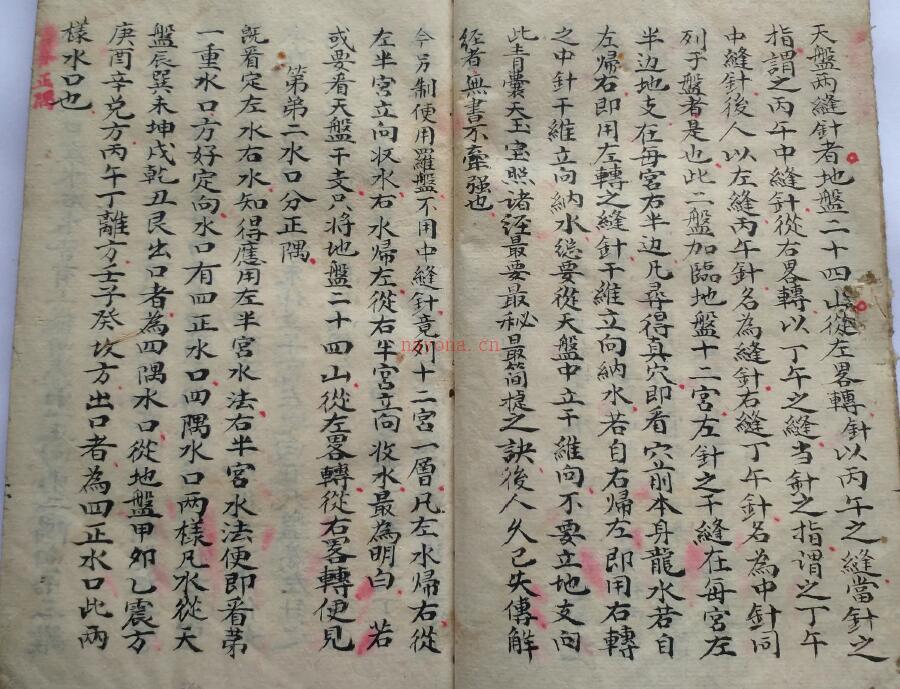 天盤兩縫針者地盤二十四山從左畧轉針以丙午之縫當針之
指謂之丙午中縫針從右畧轉以丁午之縫当針之指謂之丁午
中縫針後人以左縫丙午針名為縫針右縫丁午針名為中針同
列于盤者是也此二盤加臨地盤十二宮左針之干縫在每宮左
半边地支在每宮右半边凡尋得真穴即看穴前本身龍水若自
左歸右即用左轉之縫針干維立向納水若自右歸左即用右轉
之中針干維立向納水總要從天盤中立干維向不要立地支向
此青囊天玉宝照諸經最要最秘最简捷之訣後人久已失傳解
經者無書不牽强也
今另制使用羅盤不用中縫針竟列十二宮一層凡左水歸右從
左半宮立向收水右水歸左從右半宮立向收水最為明白若
或要看天盤干支只將地盤二十四山從左畧轉從右畧轉便見
第弟二水口分正隅
既看定左水右水知得應用左半宮水法右半宮水法便即看第
一重水口方好定向水口有四正水口四隅水口两樣凡水從天
盤辰巽未坤戌乾丑艮出口者為四隅水口從地盤甲卯乙震方
庚酉辛兑方丙午丁離方壬子癸坎方出口者為四正水口此兩
樣水口也
正隅
navona.cn